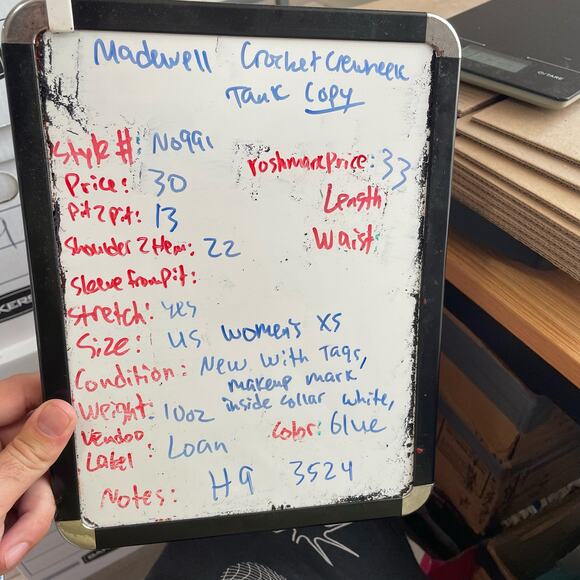 Madewell Crochet Crewneck
Tank Copy
Style #: No991
Poshmark Price: 33
Price: 30
Length
Pit2pit: 13
Waist:
Shoulder2Hem: 22
Sleeve from Pit:
Stretch: yes
Size: US women's XS
Condition: New with Tags,
makeup mark
inside collar white,
Weight: 10oz
Color: Blue
Vendoo
Label: Loan
Notes: H9 3524
ZERO/TARE